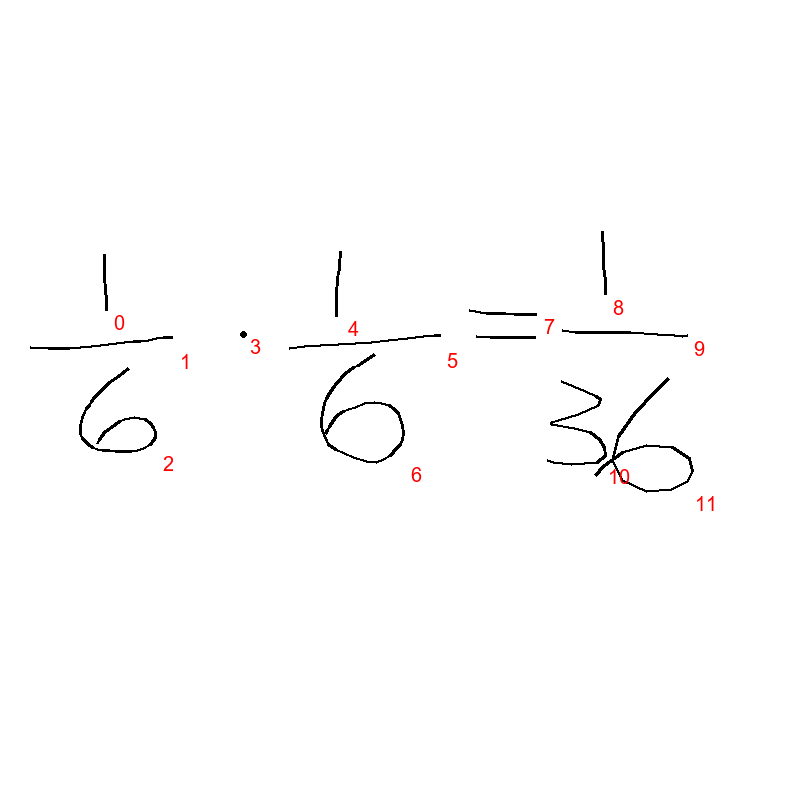 1/6 · 1/6 = 1/36
0 1 2 3 4 5 6 7 8 9 10 11